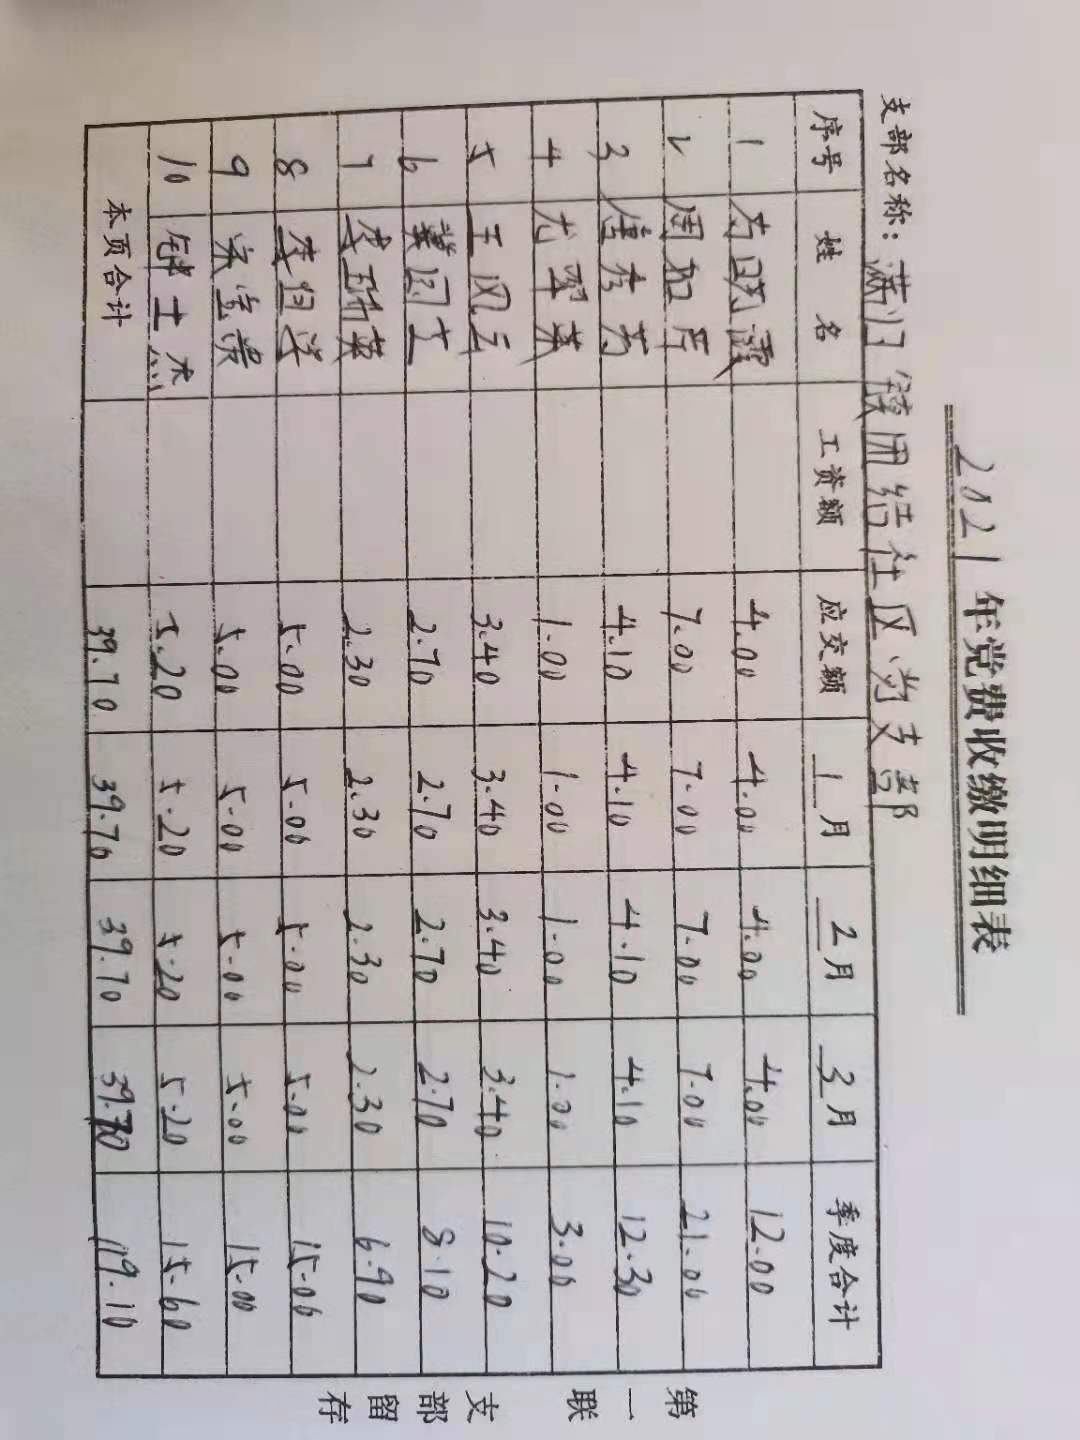 2021年党费收缴明细表
支部名称：团结社区党支部
序号 姓名 工资额 应交额 1月 2月 3月 季度合计
1 4.00 4.00 4.00 4.00 12.00
2 周 7.00 7.00 7.00 7.00 21.00
3 唐秀芳 4.10 4.10 4.10 4.10 12.30
4 尤翠英 1.00 1.00 1.00 1.00 3.00
5 王凤云 3.40 3.40 3.40 3.40 10.20
6 冀 2.70 2.70 2.70 2.70 8.10
7 英 2.30 2.30 2.30 2.30 6.90
8 5.00 5.00 5.00 5.00 15.00
9 宋宝贵 5.00 5.00 5.00 5.00 15.00
10 士杰 5.20 5.20 5.20 5.20 15.60
本页合计 39.70 39.70 39.70 39.70 119.10
第一联 支部留存